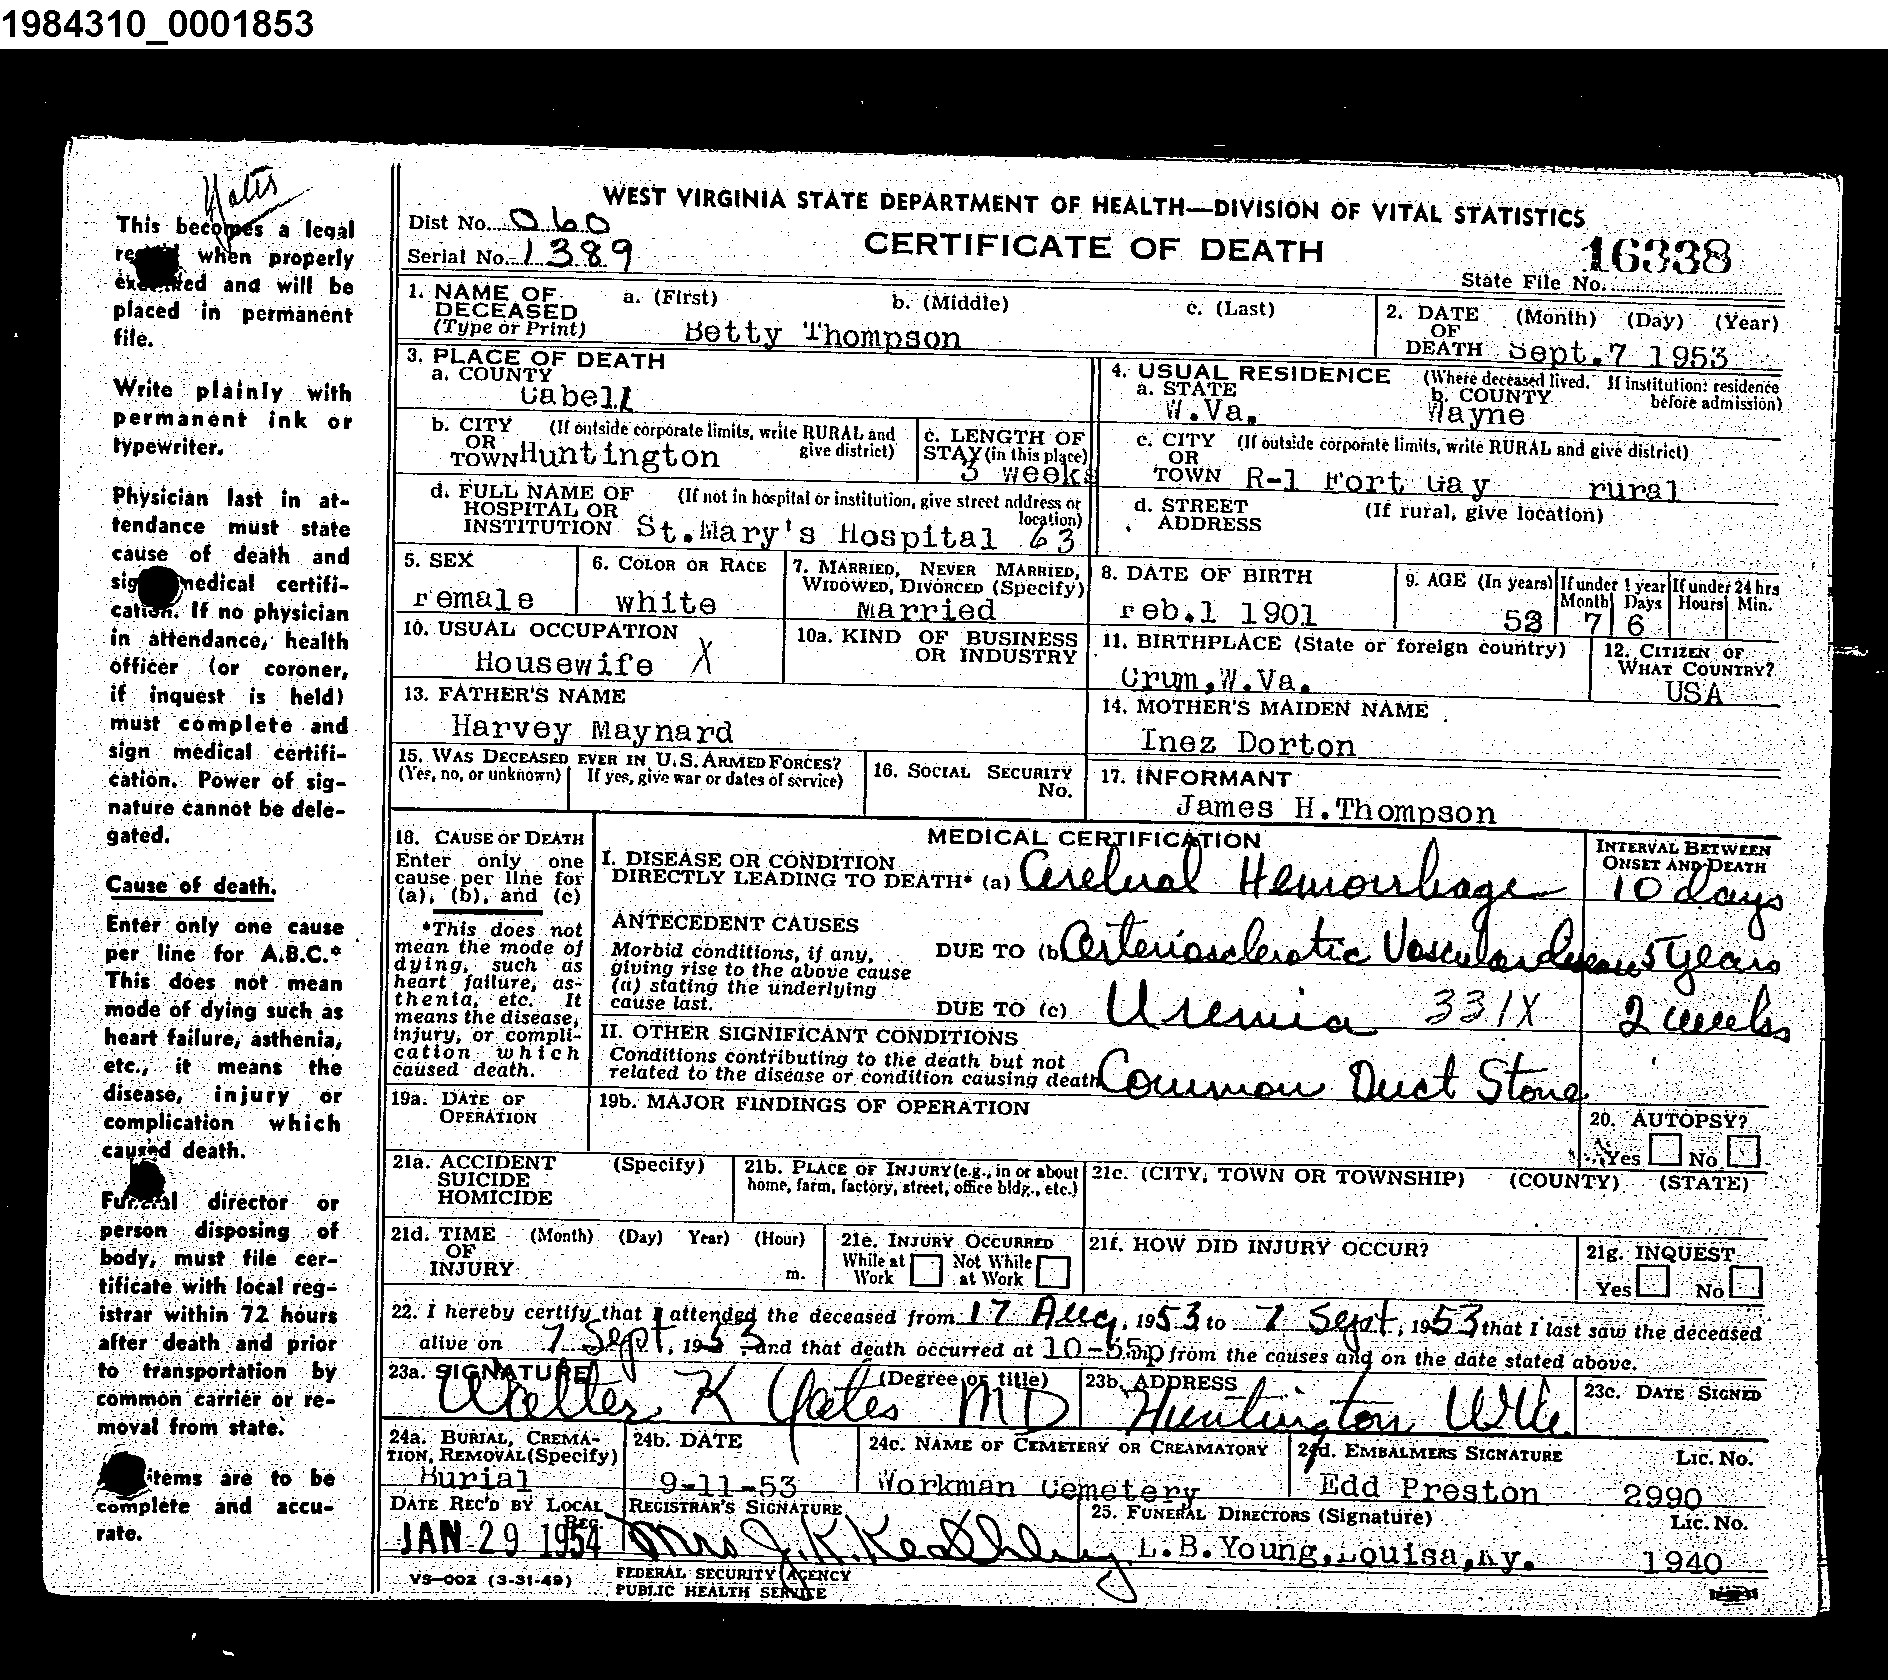 1984310_0001853
Yates
This becomes a legal
when properly
and will be
placed in permanent
file.
Write plainly with
permanent ink or
typewriter.
Physician last in at-
tendance must state
cause of death and
medical certifi-
cation. If no physician
in attendance, health
officer (or coroner,
if inquest is held)
must complete and
sign medical certifi-
cation. Power of sig-
nature cannot be dele-
gated.
Cause of death.
Enter only one cause
per line for A.B.C.*
This does not mean
mode of dying such as
heart failure, asthenia,
etc., it means the
disease, injury or
complication which
caused death.
Funeral director or
person disposing of
body, must file cer-
tificate with local reg-
istrar within 72 hours
after death and prior
to transportation by
common carrier or re-
moval from state.
items are to be
complete and accu-
rate.
WEST VIRGINIA STATE DEPARTMENT OF HEALTH—DIVISION OF VITAL STATISTICS
Dist No. 060
CERTIFICATE OF DEATH
Serial No. 1389
16338
State File No.
1. NAME OF DECEASED (Type or Print) a. (First) b. (Middle) c. (Last)
Betty Thompson
2. DATE OF DEATH (Month) (Day) (Year)
Sept.7 1953
3. PLACE OF DEATH
a. COUNTY
Cabell
4. USUAL RESIDENCE (Where deceased lived. If institution: residence before admission)
a. STATE W.Va. b. COUNTY Wayne
b. CITY OR TOWN (If outside corporate limits, write RURAL and give district)
Huntington
c. LENGTH OF STAY (in this place)
3 weeks
c. CITY OR TOWN (If outside corporate limits, write RURAL and give district)
R-1 Fort Gay rural
d. FULL NAME OF HOSPITAL OR INSTITUTION (If not in hospital or institution, give street address or location)
St.Mary's Hospital 63
d. STREET ADDRESS (If rural, give location)
5. SEX
Female
6. COLOR OR RACE
white
7. MARRIED, NEVER MARRIED, WIDOWED, DIVORCED (Specify)
Married
8. DATE OF BIRTH
Feb.1 1901
9. AGE (In years) If under 1 year If under 24 hrs
Month Days Hours Min.
7 6
10. USUAL OCCUPATION
Housewife X
10a. KIND OF BUSINESS OR INDUSTRY
11. BIRTHPLACE (State or foreign country)
Crum,W.Va.
12. CITIZEN OF WHAT COUNTRY?
USA
13. FATHER'S NAME
Harvey Maynard
14. MOTHER'S MAIDEN NAME
Inez Dorton
15. WAS DECEASED EVER IN U.S. ARMED FORCES?
(Yes, no, or unknown) If yes, give war or dates of service)
16. SOCIAL SECURITY No.
17. INFORMANT
James H.Thompson
18. CAUSE OF DEATH
Enter only one
cause per line for
(a), (b), and (c)
*This does not
mean the mode of
dying, such as
heart failure, as-
thenia, etc. It
means the disease,
injury, or compli-
cation which
caused death.
MEDICAL CERTIFICATION
INTERVAL BETWEEN ONSET AND DEATH
I. DISEASE OR CONDITION
DIRECTLY LEADING TO DEATH* (a) Cerebral Hemorrhage 10 days
ANTECEDENT CAUSES
Morbid conditions, if any,
giving rise to the above cause
(a) stating the underlying
cause last.
DUE TO (b) Arteriosclerotic Vascular disease 5 years
DUE TO (c) Uremia 331X 2 weeks
II. OTHER SIGNIFICANT CONDITIONS
Conditions contributing to the death but not
related to the disease or condition causing death
Common Duct Stone
19a. DATE OF OPERATION
19b. MAJOR FINDINGS OF OPERATION
20. AUTOPSY?
Yes No
21a. ACCIDENT SUICIDE HOMICIDE (Specify)
21b. PLACE OF INJURY (e.g., in or about home, farm, factory, street, office bldg., etc.)
21c. (CITY, TOWN OR TOWNSHIP) (COUNTY) (STATE)
21d. TIME OF INJURY (Month) (Day) Year) (Hour) m.
21e. INJURY OCCURRED
While at Work Not While at Work
21f. HOW DID INJURY OCCUR?
21g. INQUEST
Yes No
22. I hereby certify that I attended the deceased from 17 Aug, 1953 to 7 Sept, 1953 that I last saw the deceased
alive on 7 Sept, 1953 and that death occurred at 10-55 p m from the causes and on the date stated above.
23a. SIGNATURE (Degree or title)
Walter K Yates MD
23b. ADDRESS
Huntington W Va.
23c. DATE SIGNED
24a. BURIAL, CREMA-
TION, REMOVAL (Specify)
Burial
24b. DATE
9-11-53
24c. NAME OF CEMETERY OR CREAMATORY
Workman Cemetery
24d. EMBALMERS SIGNATURE Lic. No.
Edd Preston 2990
DATE REC'D BY LOCAL REG.
JAN 29 1954
REGISTRAR'S SIGNATURE
25. FUNERAL DIRECTORS (Signature) Lic. No.
L.B.Young,Louisa,Ky. 1940
VS-002 (3-31-49)
FEDERAL SECURITY AGENCY
PUBLIC HEALTH SERVICE